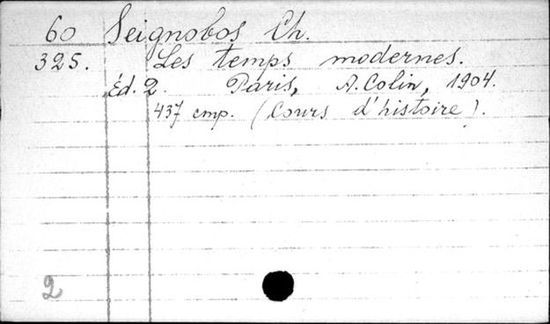 60 Seignobos Ch.
325. Les temps modernes.
Éd. 2. Paris, A. Colin, 1904.
437 стр. (Cours d'histoire).
2